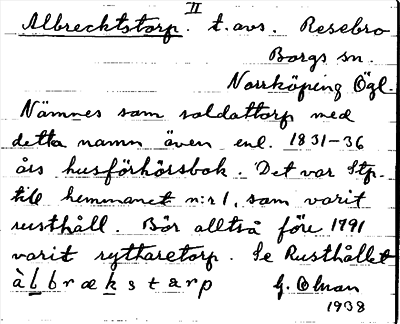 II
Albrecktstorp. t. avs. Resebro
Borgs sn.
Norrköping Ögl.
Nämnes som soldattorp med
detta namn även enl. 1831-36
års husförhörsbok. Det var Stp.
till hemmanet n:r 1, som varit
rusthåll. Bör alltså före 1791
varit ryttaretorp. Se Rusthållet
àlbrækstærp G. Olman
1938